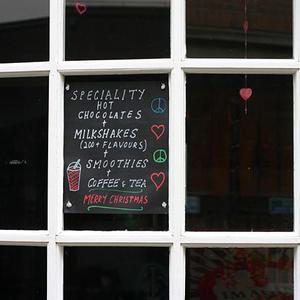 SPECIALITY
HOT
CHOCOLATES
+
MILKSHAKES
(200+ FLAVOURS)
+
SMOOTHIES
+
COFFEE & TEA
MERRY CHRISTMAS